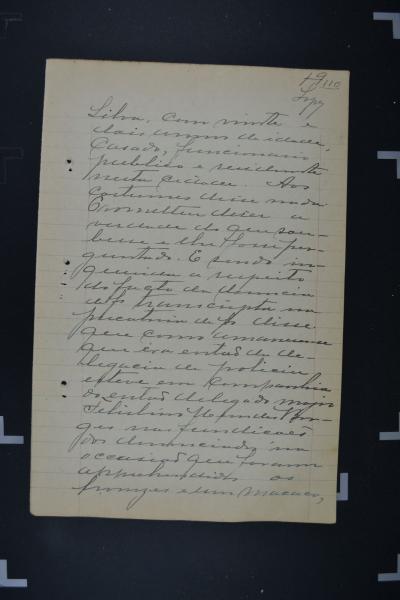 19 110
Silva, com vinte e
dois annos de idade,
casado, funccionario
publico e residente
nesta cidade. Aos
costumes disse nada.
Prometteu dizer a
verdade do que sou-
besse e lhe fosse per-
guntado. E sendo in-
querida a respeito
do facto da denuncia
de fls transcripta na
precatoria de fls disse:
que como amanuense
que era então da de-
legacia de policia
esteve em companhia
do então delegado major
nas fundicões
dos denunciados, na
occasião que foram
apprehendidos os
e um macaco,